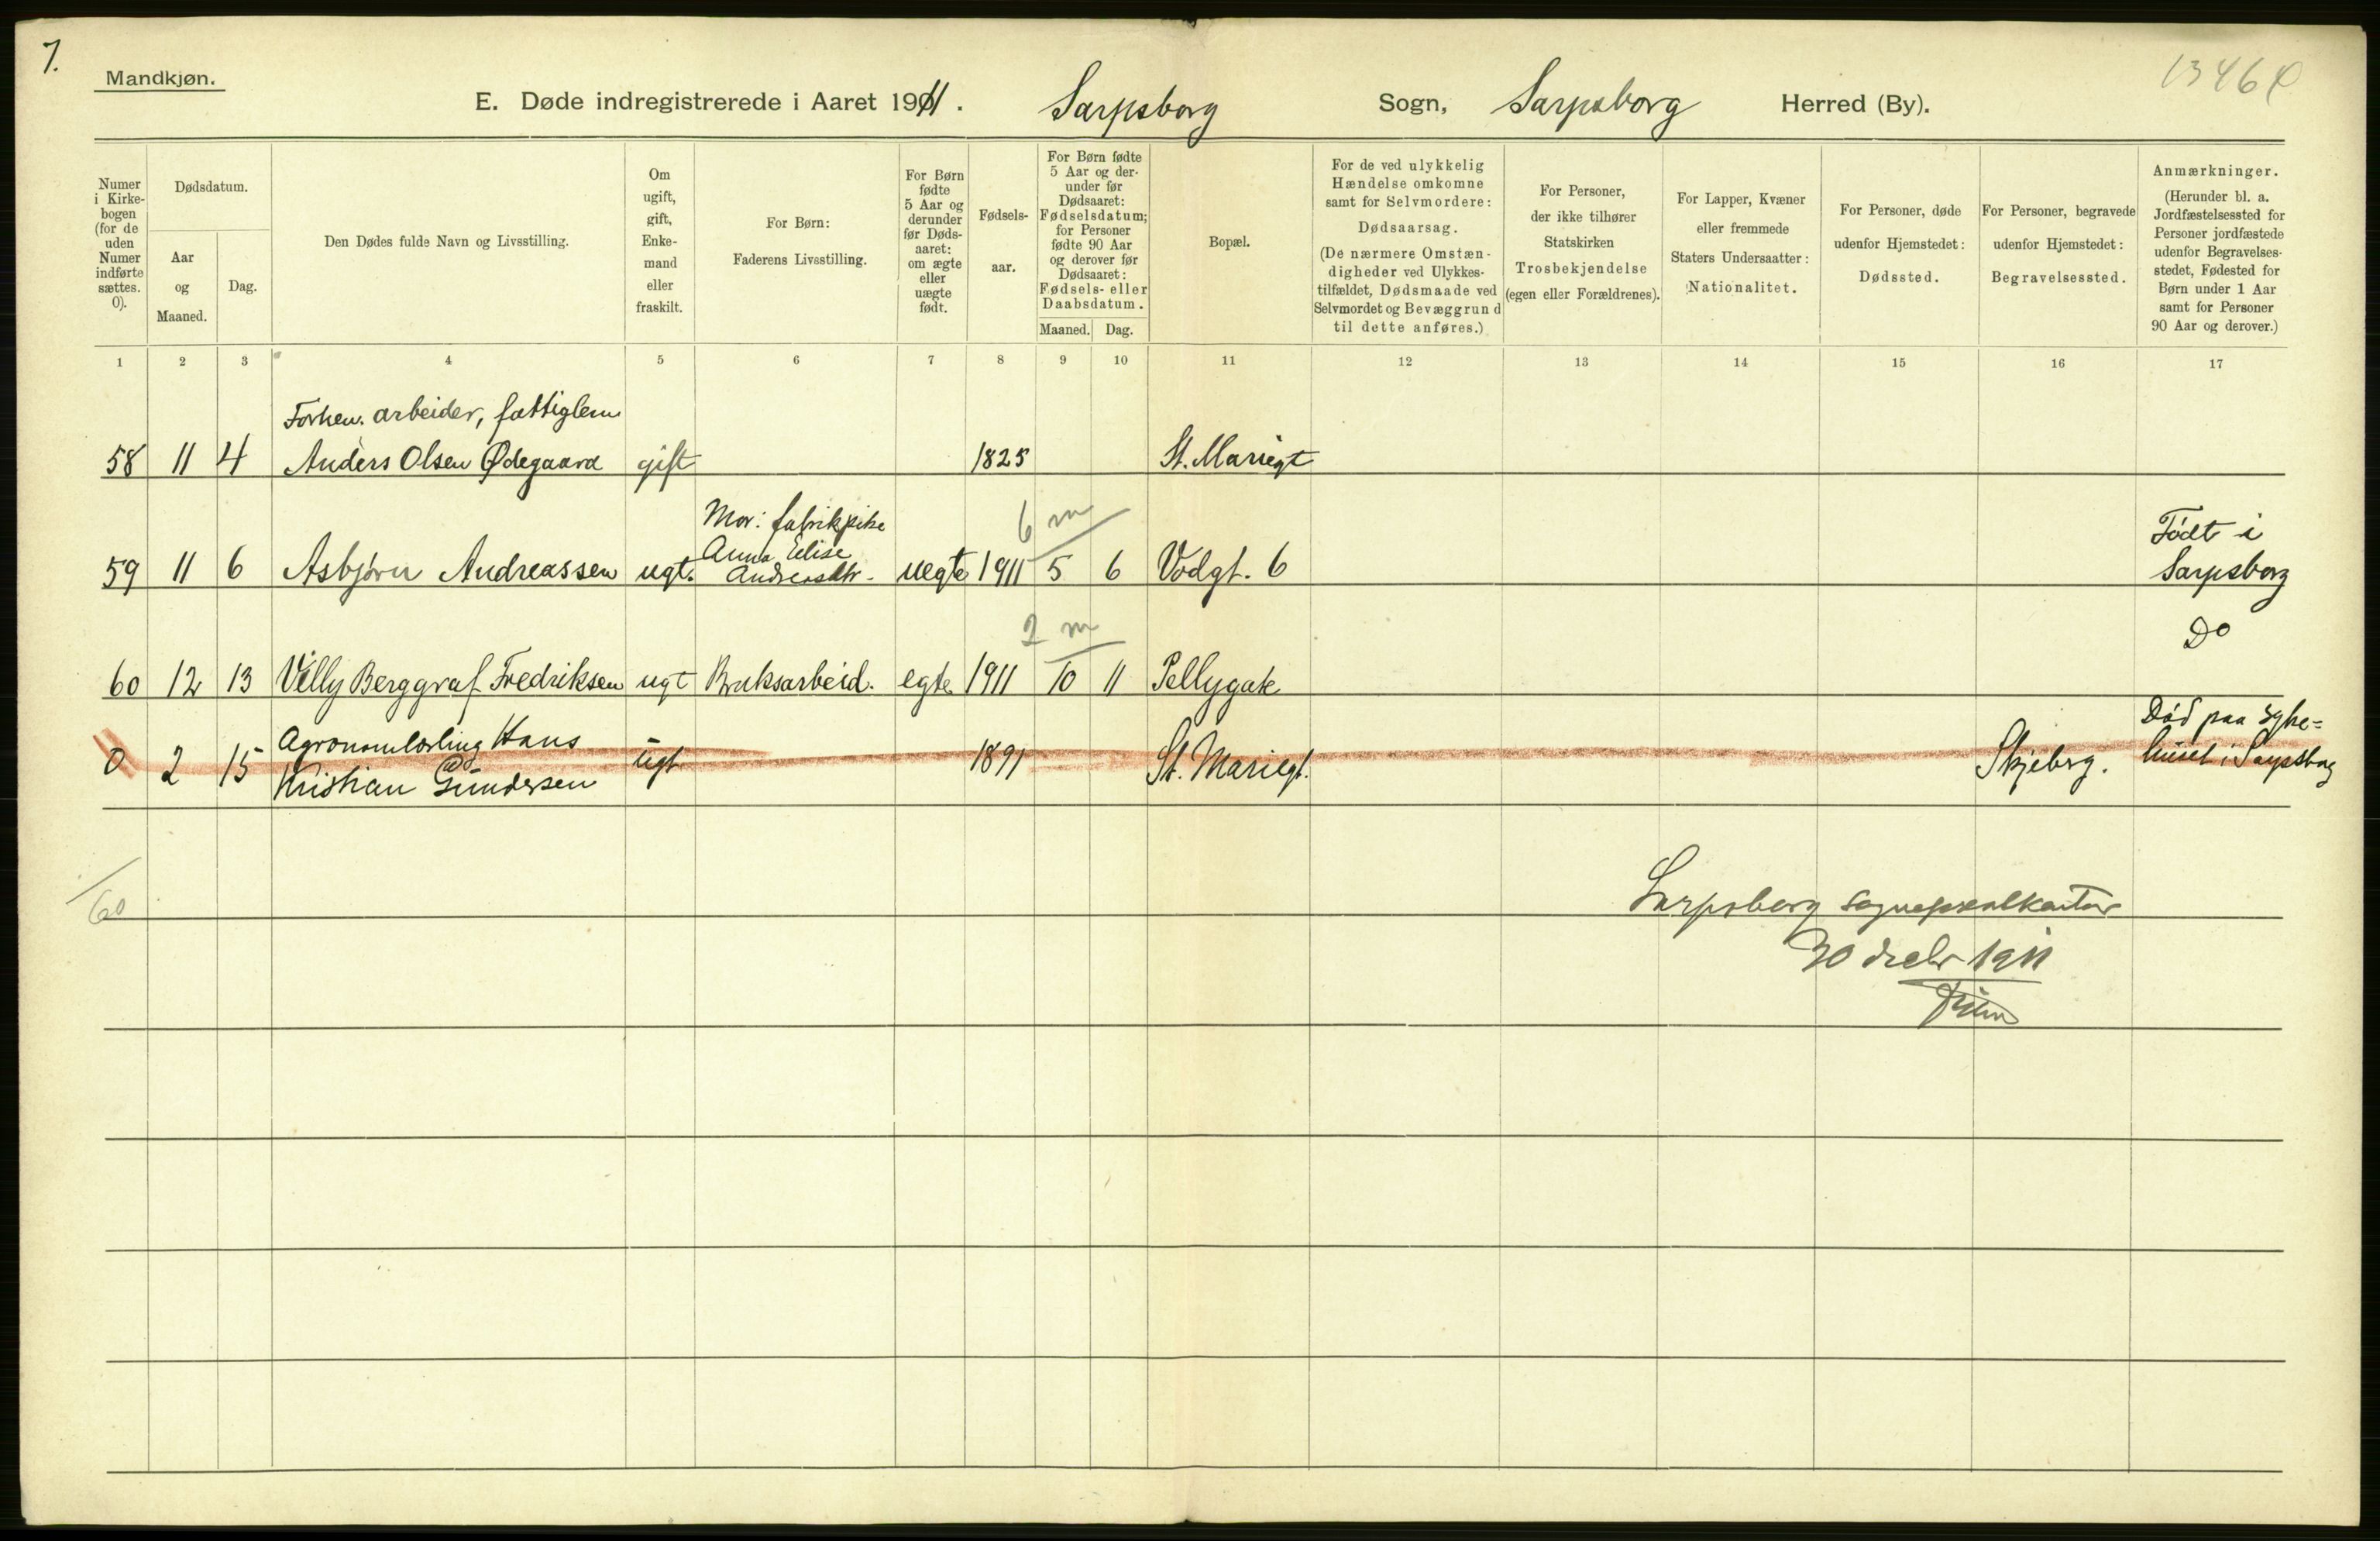 7.
Mandkjøn.
E. Døde indregistrerede i Aaret 1911. Sarpsborg Sogn, Sarpsborg Herred (By).
Numer i Kirke-bogen (for de uden Numer indførte sættes. 0).
Dødsdatum.
Aar og Maaned.
Dag.
Den Dødes fulde Navn og Livsstilling.
Om ugift, gift, Enke-mand eller fraskilt.
For Børn: Faderens Livsstilling.
For Børn fødte 5 Aar og derunder før Døds-aaret: om ægte eller uægte født.
Fødsels-aar.
For Børn fødte 5 Aar og der-under før Dødsaaret: Fødselsdatum; for Personer fødte 90 Aar og derover før Dødsaaret: Fødsels- eller Daabsdatum.
Maaned. Dag.
Bopæl.
For de ved ulykkelig Hændelse omkomne samt for Selvmordere: Dødsaarsag. (De nærmere Omstæn-digheder ved Ulykkes-tilfældet, Dødsmaade ved Selvmordet og Bevæggrund til dette anføres.)
For Personer, der ikke tilhører Statskirken Trosbekjendelse (egen eller Forældrenes).
For Lapper, Kvæner eller fremmede Staters Undersaatter: Nationalitet.
For Personer, døde udenfor Hjemstedet: Dødssted.
For Personer, begravede udenfor Hjemstedet: Begravelsessted.
Anmærkninger. (Herunder bl. a. Jordfæstelsessted for Personer jordfæstede udenfor Begravelses-stedet, Fødested for Børn under 1 Aar samt for Personer 90 Aar og derover.)
1 2 3 4 5 6 7 8 9 10 11 12 13 14 15 16 17
Forhen. arbeider, fattiglem
58 11 4 Anders Olsen Ødegaard gift 1825 St. Mariegt
Mor: fabrikpike 6 m Født i
Anna Elise
59 11 6 Asbjørn Andreassen ugt. Andreasdtr. uegte 1911 5 6 Vodgt. 6 Sarpsborg
2 m Do
60 12 13 Villy Berggraf Fredriksen ugt Bruksarbeid. egte 1911 10 11 Pellygate
Agronomlærling Hans Død paa syke=
0 2 15 Kristian Gundersen ugt 1891 St. Mariegt. Skjeberg. huset i Sarpsborg
60
Sarpsborg sogneprestkontor
30 decbr 1911